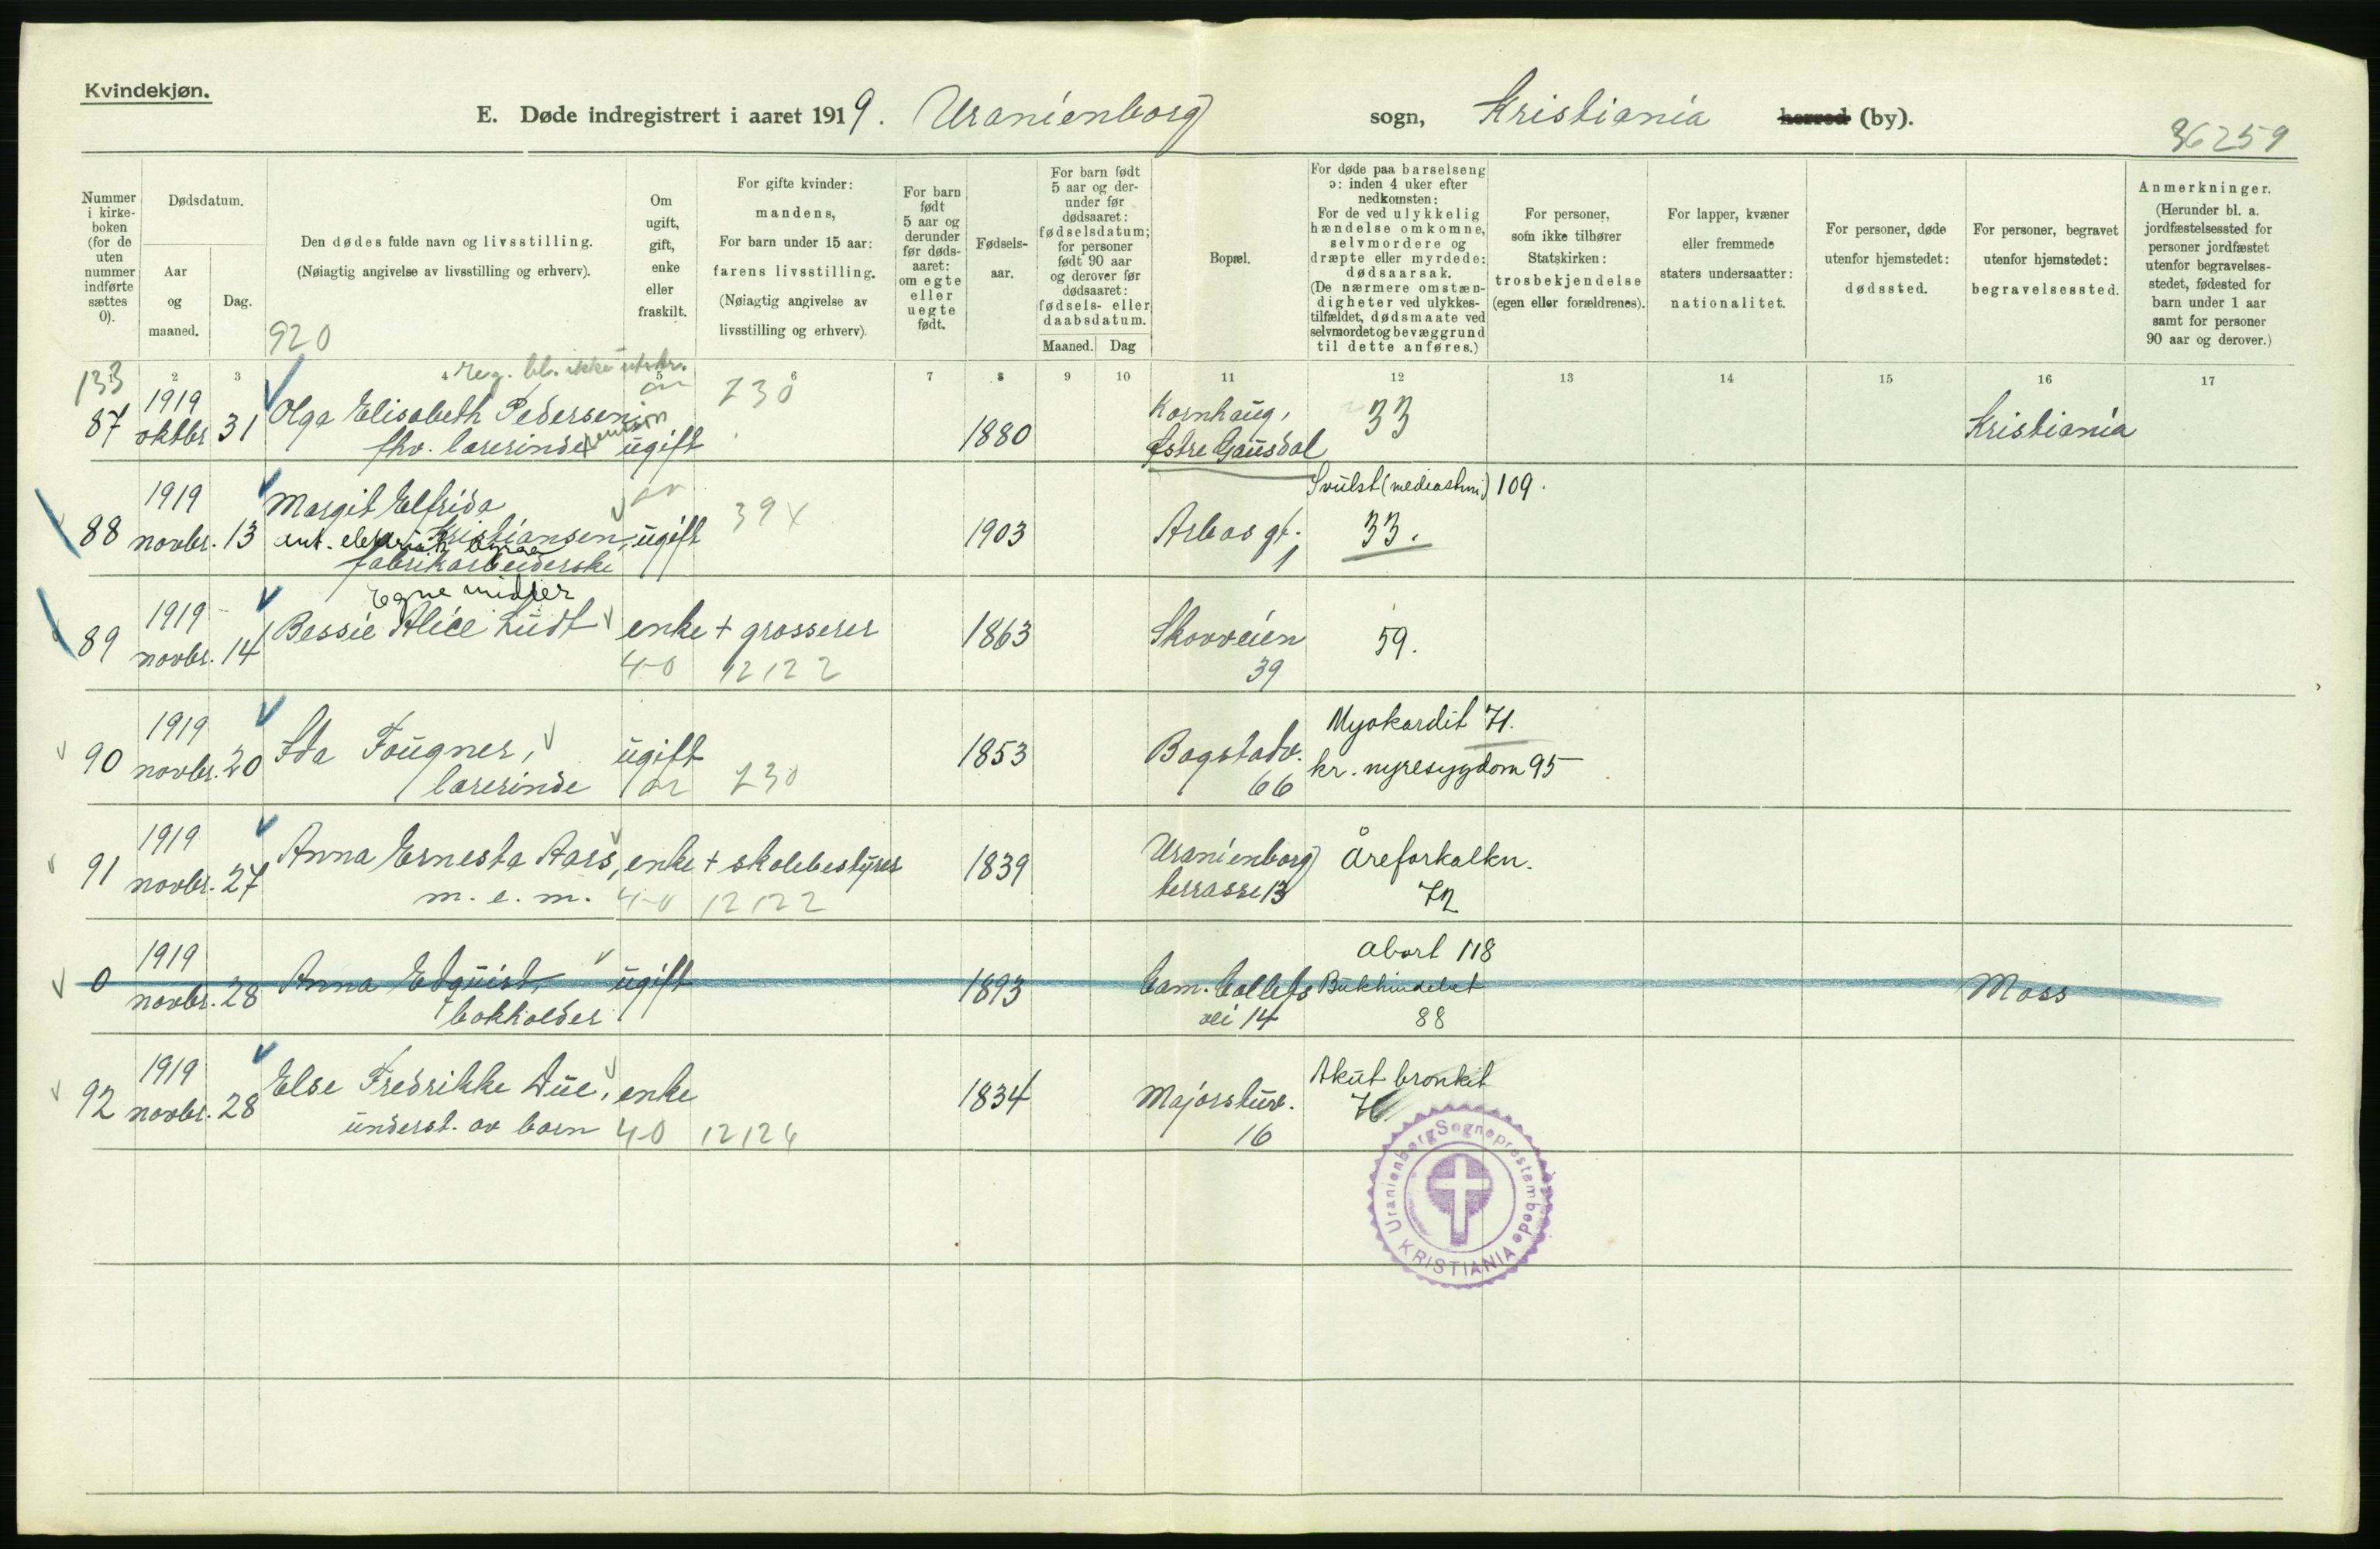 Kvindekjøn.
E. Døde indregistrert i aaret 1919. Uranienborg sogn, Kristiania herred (by).
36259
Nummer i kirke-boken (for de uten nummer indførte sættes 0).
Dødsdatum.
Aar og maaned.
Dag.
Den dødes fulde navn og livsstilling.
(Nøiagtig angivelse av livsstilling og erhverv).
920
Om ugift, gift, enke eller fraskilt.
For gifte kvinder: mandens,
For barn under 15 aar: farens livsstilling.
(Nøiagtig angivelse av livsstilling og erhverv).
For barn født 5 aar og derunder før døds-aaret: om egte eller uegte født.
Fødsels-aar.
For barn født 5 aar og der-under før dødsaaret: fødselsdatum; for personer født 90 aar og derover før dødsaaret: fødsels- eller daabsdatum.
Maaned. Dag
Bopæl.
For døde paa barselseng ɔ: inden 4 uker efter nedkomsten:
For de ved ulykkelig hændelse omkomne, selvmordere og dræpte eller myrdede: dødsaarsak.
(De nærmere omstæn-digheter ved ulykkes-tilfældet, dødsmaate ved selvmordet og bevæggrund til dette anføres.)
For personer, som ikke tilhører Statskirken: trosbekjendelse (egen eller forældrenes).
For lapper, kvæner eller fremmede staters undersaatter: nationalitet.
For personer, døde utenfor hjemstedet: dødssted.
For personer, begravet utenfor hjemstedet: begravelsessted.
Anmerkninger.
(Herunder bl. a. jordfæstelsessted for personer jordfæstet utenfor begravelses-stedet, fødested for barn under 1 aar samt for personer 90 aar og derover.)
2 3 4 5 6 7 8 9 10 11 12 13 14 15 16 17
133
Reg. bl. ikke utskr.
87 1919 oktbr 31 Olga Elisabeth Pedersen
fhv. lærerinde pension ugift 230 1880 Kornhaug, Østre Gausdal 33 Kristiania
88 1919 novbr. 13 Margit Elfrida Kristiansen, ugift 39x 1903 Arbos gt. 1 Svulst (mediastini) 109. 33.
fabrikarbeiderske
Egne midler
89 1919 novbr. 14 Bessie Alice Ludt enke + grosserer 1863 Skovveien 39 59.
40 12122
90 1919 novbr. 20 Ida Fougner, ugift 1853 Bogstadv. 66 Myokardit 71.
lærerinde ar 230 kr. nyresygdom 95
91 1919 novbr. 27 Anna Ernesta Aars, enke + skolebestyrer 1839 Uranienborg terrasse 13 Åreforkalkn. 72
m. e. m. 40 12122
0 1919 novbr. 28 Anna Edquist, ugift 1893 Cam. Colletts vei 14 Abort 118 Bukhindebet 88 Moss
bokholder
92 1919 novbr. 28 Else Fredrikke Due, enke 1834 Majorstuv. 16 Akut bronkit
underst. av barn 40 12124
Uranienborg Sogneprestembede
KRISTIANIA